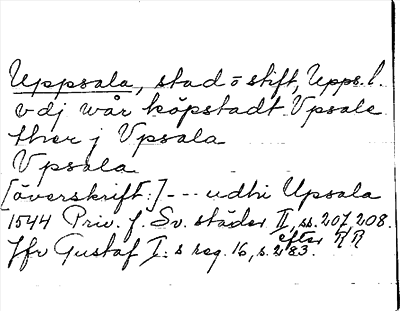 Uppsala, stad o stift, Upps. l.
vdj wår köpstadt Vpsala
ther j Vpsala
Vpsala
[överskrift:] --- udhi Upsala
1544 Priv. f. Sv. städer II, ss. 207, 208.
efter RR
Jfr Gustaf I:s reg. 16, s. 283.